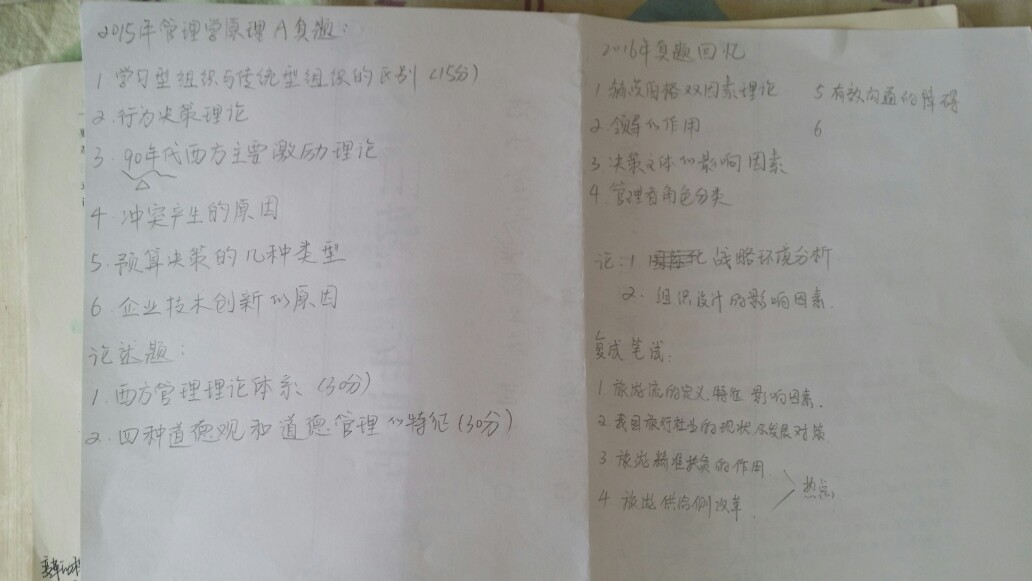 2015年管理学原理A真题：
1. 学习型组织与传统型组织的区别（15分）
2. 行为决策理论
3. 90年代西方主要激励理论
4. 冲突产生的原因
5. 预算决策的几种类型
6. 企业技术创新的原因
论述题：
1. 西方管理理论体系（30分）
2. 四种道德观和道德管理的特征（30分）
2016年真题回忆
1 赫茨伯格双因素理论
2. 领导的作用
3. 决策主体的影响因素
4. 管理者角色分类
5 有效沟通的障碍
6
论：1 战略环境分析
2. 组织设计的影响因素.
复试笔试：
1. 旅游流的定义、特征 影响因素.
2 我国旅行社业的现状及发展对策
3 旅游精准扶贫的作用
4. 旅游供给侧改革
热点